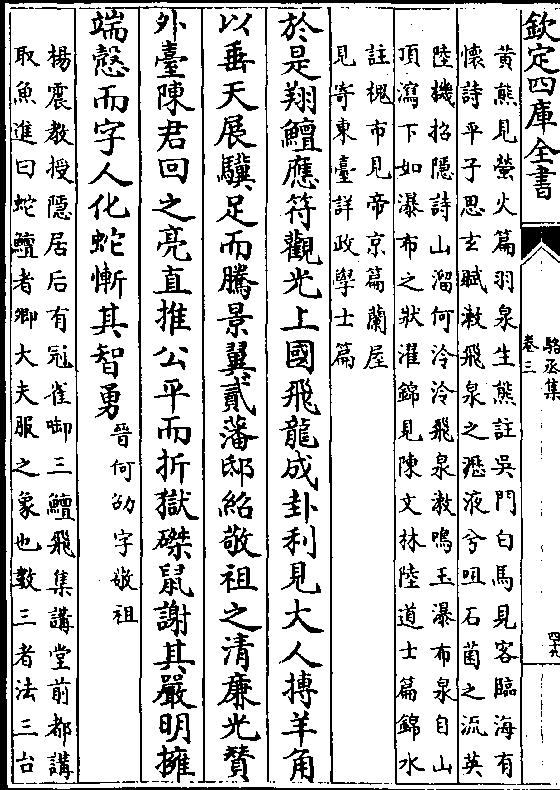 欽定四庫全書
駱丞集
卷三
四十九
黄熊見螢火篇羽泉生熊註吳門白馬見客臨海有
懐詩平子思𤣥賦漱飛泉之瀝液兮咀石菌之流英
陸機招隠詩山溜何泠泠飛泉漱鳴玉瀑布泉自山
頂瀉下如瀑布之狀濯錦見陳文林陸道士篇錦水
註槐市見帝京篇蘭屋
見寄東臺詳政學士篇
於是翔鱣應符觀光上國飛龍成卦利見大人摶羊角
以垂天展驥足而騰景翼貳藩邸紹敬祖之清廉光賛
外臺陳君回之亮直推公平而折獄磔䑕謝其嚴明擁
端慤而字人化蛇慚其智勇
晉何劭字敬祖
楊震教授隠居后有冠雀啣三鱣飛集講堂前都講
取魚進曰蛇鱣者卿大夫服之象也數三者法三台